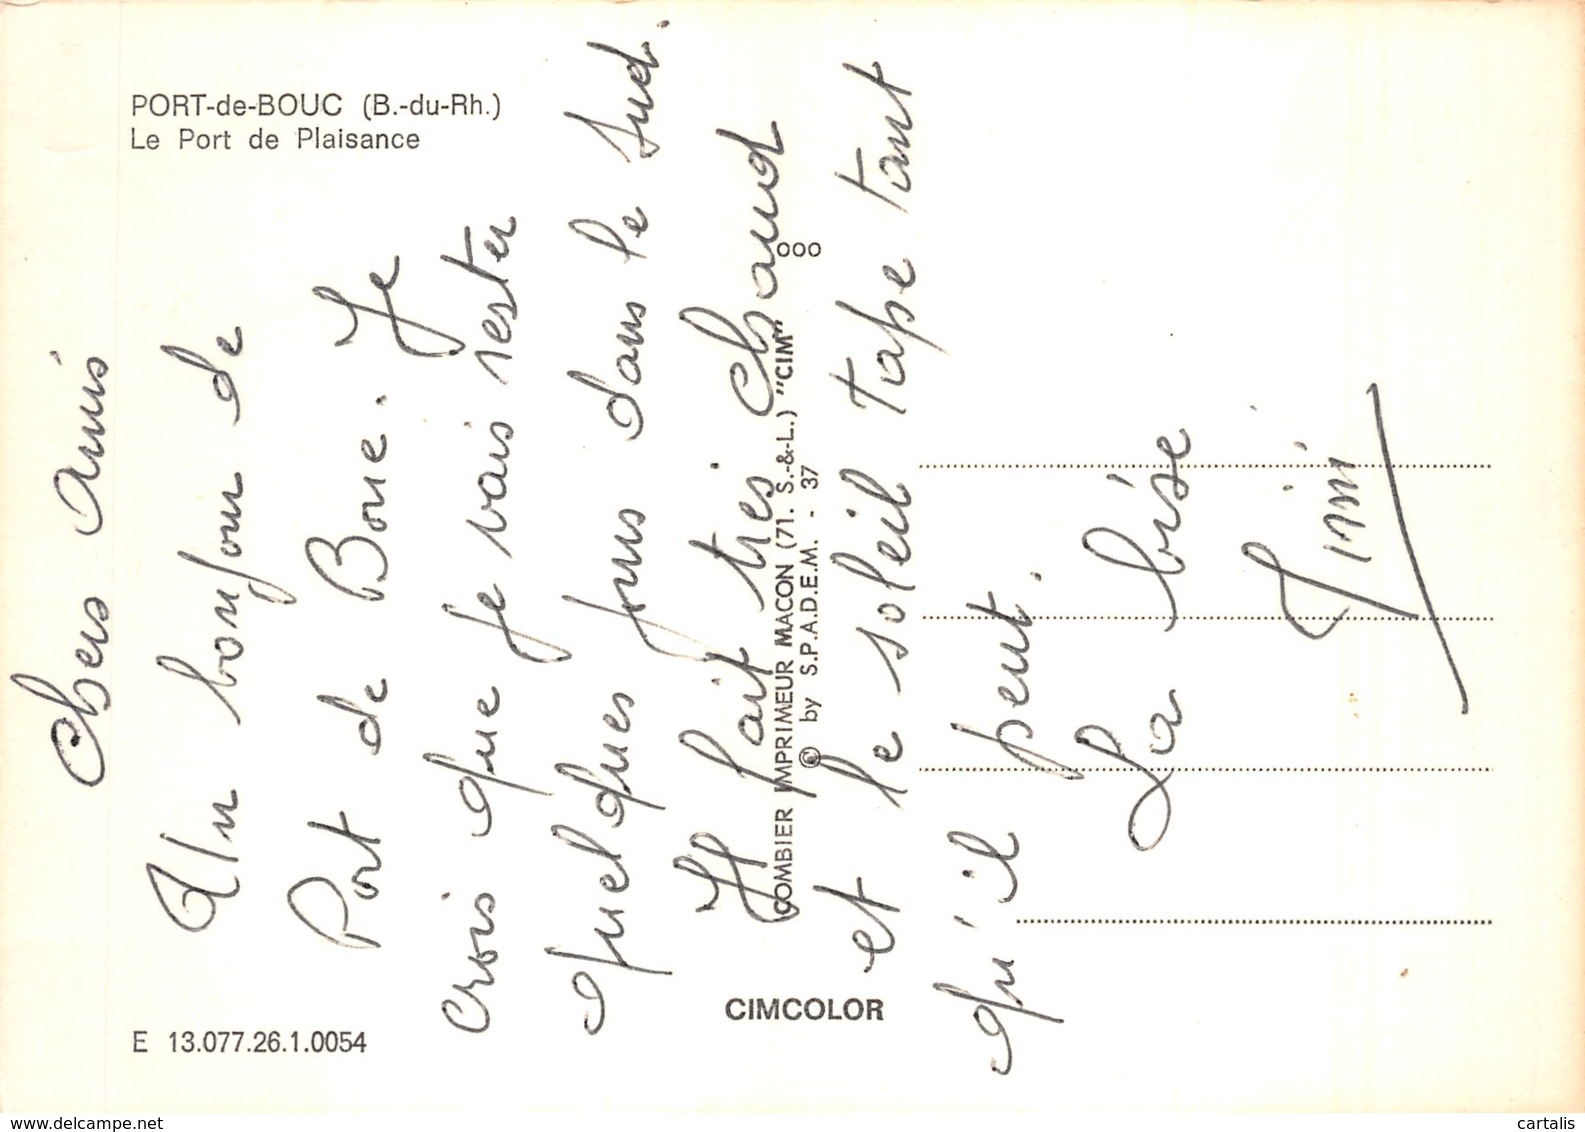 PORT-de-BOUC (B.-du-Rh.)
Le Port de Plaisance
Chers amis
Un bonjour de
Port de Bouc. Je
crois que je vais rester
quelques jours dans le sud.
Il fait très chaud
et le soleil tape tant
qu'il peut.
La bise
Jimi
COMBIER IMPRIMEUR MACON (71. S.-&-L.) "CIM"
© by S.P.A.D.E.M. - 37
000
CIMCOLOR
E 13.077.26.1.0054
www.delcampe.net
cartalis